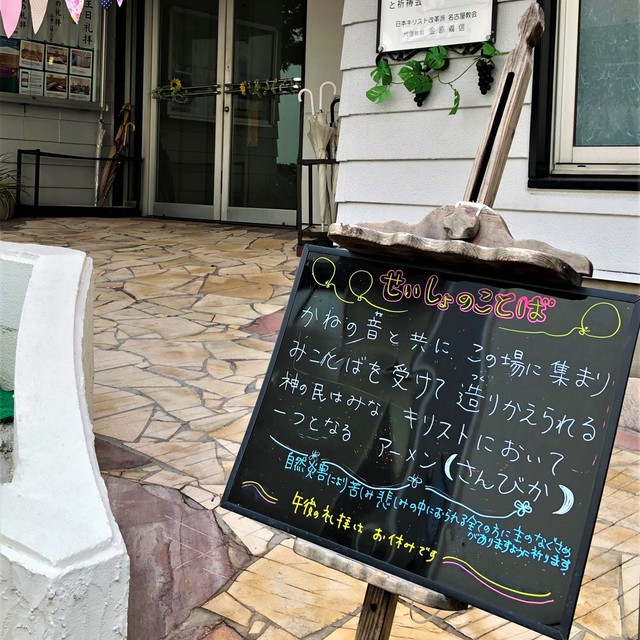 と祈祷会
日本キリスト改革派 名古屋教会
せいしょのことば
かねの音と共に この場に集まり
みことばを受けて 造りかえられる
神の民はみな キリストにおいて
一つとなる アーメン(さんびか)
自然災害により苦しみ悲しみの中におられる全ての方に主のなぐさめ
がありますように祈ります
午後の礼拝は お休みです